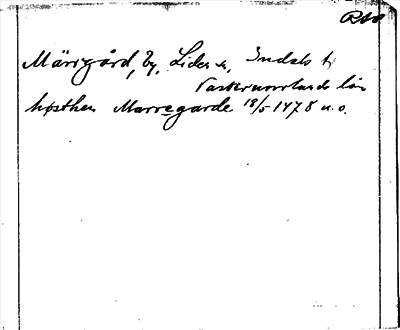 RAO
Märrgård, by, Liden sn, Indals tg
Västernorrlands län
høsthen Marregarde 18/5 1478 n.o.